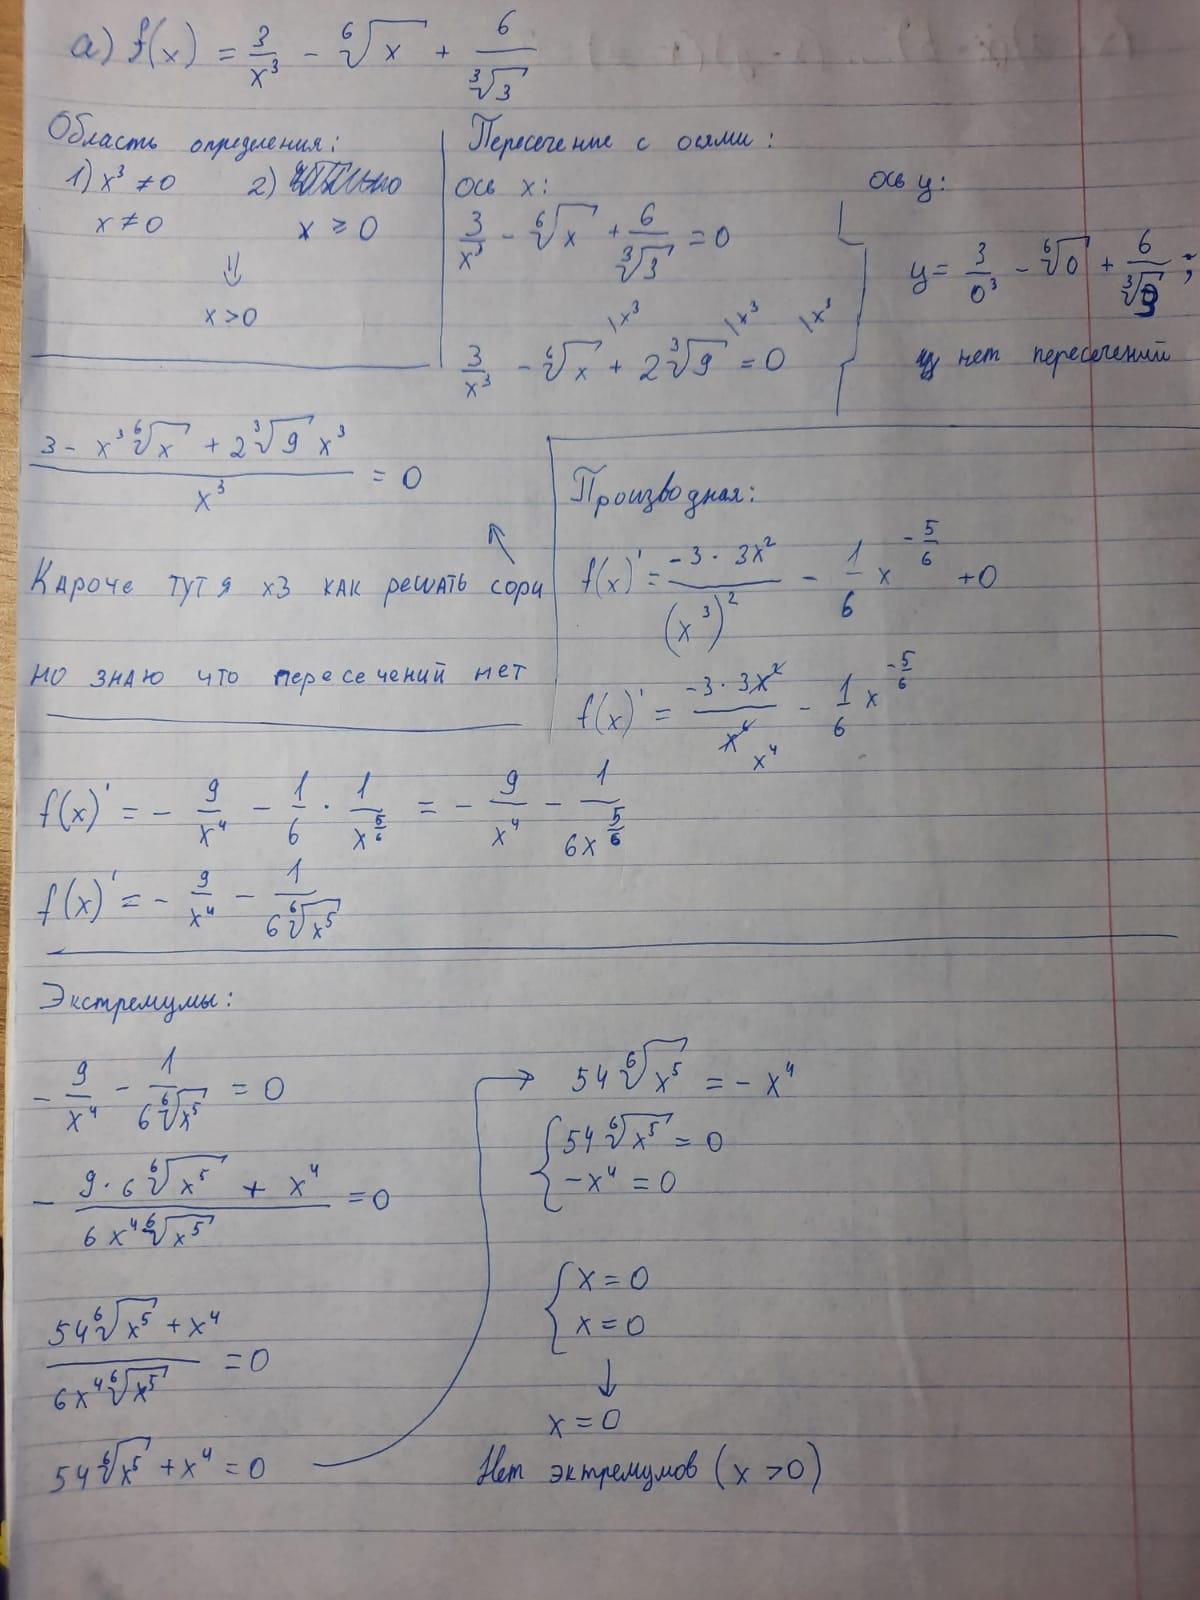 а) f(x) = 3/x³ - ⁶√x + 6/³√3
Область определения:
1) x³ ≠ 0
x ≠ 0
2)
x ≥ 0
⇓
x > 0
Пересечение с осями:
ось x:
3/x³ - ⁶√x + 6/³√3 = 0
3/x³ - ⁶√x |x³ + 2³√9 |x³ = 0 |x³
ось y:
y = 3/0³ - ⁶√0 + 6/³√3 ;
нет пересечений
(3 - x³ ⁶√x + 2³√9 x³)/x³ = 0
Кароче тут я хз как решать сори
но знаю что пересечений нет
Производная:
f(x)' = (-3 · 3x²)/(x³)² - 1/6 x^(-5/6) + 0
f(x)' = (-3 · 3x²)/x⁶ x⁴ - 1/6 x^(-5/6)
f(x)' = - 9/x⁴ - 1/6 · 1/x^(5/6) = - 9/x⁴ - 1/(6x^(5/6))
f(x)' = - 9/x⁴ - 1/(6 ⁶√x⁵)
Экстремумы:
- 9/x⁴ - 1/(6 ⁶√x⁵) = 0
- (9 · 6 ⁶√x⁵ + x⁴)/(6x⁴ ⁶√x⁵) = 0
(54 ⁶√x⁵ + x⁴)/(6x⁴ ⁶√x⁵) = 0
54 ⁶√x⁵ + x⁴ = 0
→ 54 ⁶√x⁵ = - x⁴
{ 54 ⁶√x⁵ = 0
- x⁴ = 0
{ x = 0
x = 0
↓
x = 0
Нет эктремумов (x > 0)